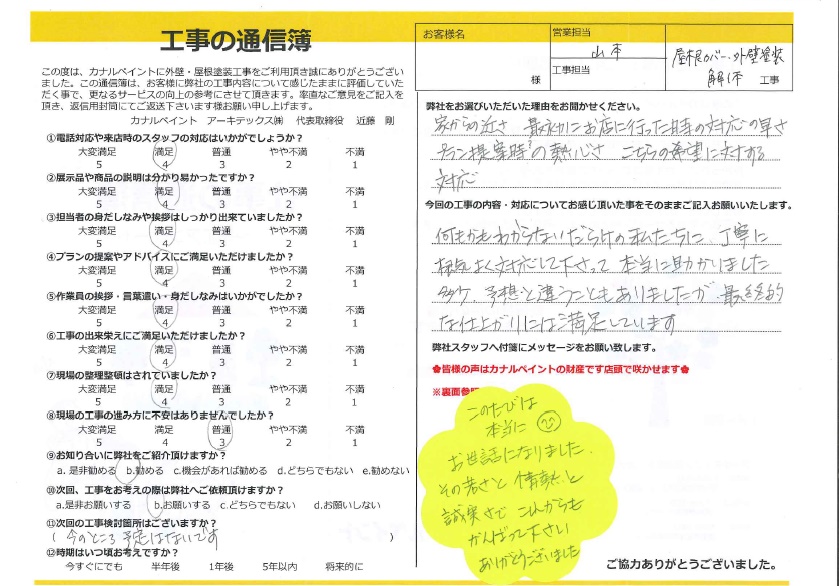 工事の通信簿
この度は、カナルペイントに外壁・屋根塗装工事をご利用頂き誠にありがとうござい
ました。この通信簿は、お客様に弊社の工事内容について感じたままに評価していた
だく事で、更なるサービスの向上の参考にさせて頂きます。率直なご意見をご記入を
頂き、返信用封筒にてご返送下さいます様お願い申し上げます。
カナルペイント アーキテックス㈱ 代表取締役 近藤 剛
①電話対応や来店時のスタッフの対応はいかがでしょうか?
大変満足 満足 普通 やや不満 不満
5 4 3 2 1
②展示品や商品の説明は分かり易かったですか?
大変満足 満足 普通 やや不満 不満
5 4 3 2 1
③担当者の身だしなみや挨拶はしっかり出来ていましたか?
大変満足 満足 普通 やや不満 不満
5 4 3 2 1
④プランの提案やアドバイスにご満足いただけましたか?
大変満足 満足 普通 やや不満 不満
5 4 3 2 1
⑤作業員の挨拶・言葉遣い・身だしなみはいかがでしたか?
大変満足 満足 普通 やや不満 不満
5 4 3 2 1
⑥工事の出来栄えにご満足いただけましたか?
大変満足 満足 普通 やや不満 不満
5 4 3 2 1
⑦現場の整理整頓はされていましたか?
大変満足 満足 普通 やや不満 不満
5 4 3 2 1
⑧現場の工事の進み方に不安はありませんでしたか?
大変満足 満足 普通 やや不満 不満
5 4 3 2 1
⑨お知り合いに弊社をご紹介頂けますか?
a. 是非勧める b.勧める c.機会があれば勧める d.どちらでもない e.勧めない
⑩次回、工事をお考えの際は弊社へご依頼頂けますか?
a.是非お願いする b.お願いする c.どちらでもない d.お願いしない
⑪次回の工事検討箇所はございますか?
( 今のところ 予定はないです )
⑫時期はいつ頃お考えですか?
今すぐにでも 半年後 1年後 5年以内 将来的に
お客様名
様
営業担当
山本
工事担当
屋根カバー、外壁塗装
解体 工事
弊社をお選びいただいた理由をお聞かせください。
家からの近さ 最初にお店に行った時の対応の早さ
プラン提案時の熱心さ こちらの希望に対する
対応
今回の工事の内容・対応についてお感じ頂いた事をそのままご記入お願いいたします。
何もかもわからないだらけの私たちに、丁寧に
根気よく対応して下さって 本当に助かりました
多少、予想と違うこともありましたが 最終的
な仕上がりには満足しています
弊社スタッフへ付箋にメッセージをお願い致します。
✿皆様の声はカナルペイントの財産です店頭で咲かせます✿
※裏面参照
このたびは
本当に
お世話になりました。
その若さと 情熱と
誠実さで これからも
がんばって下さい
ありがとうございました
ご協力ありがとうございました。